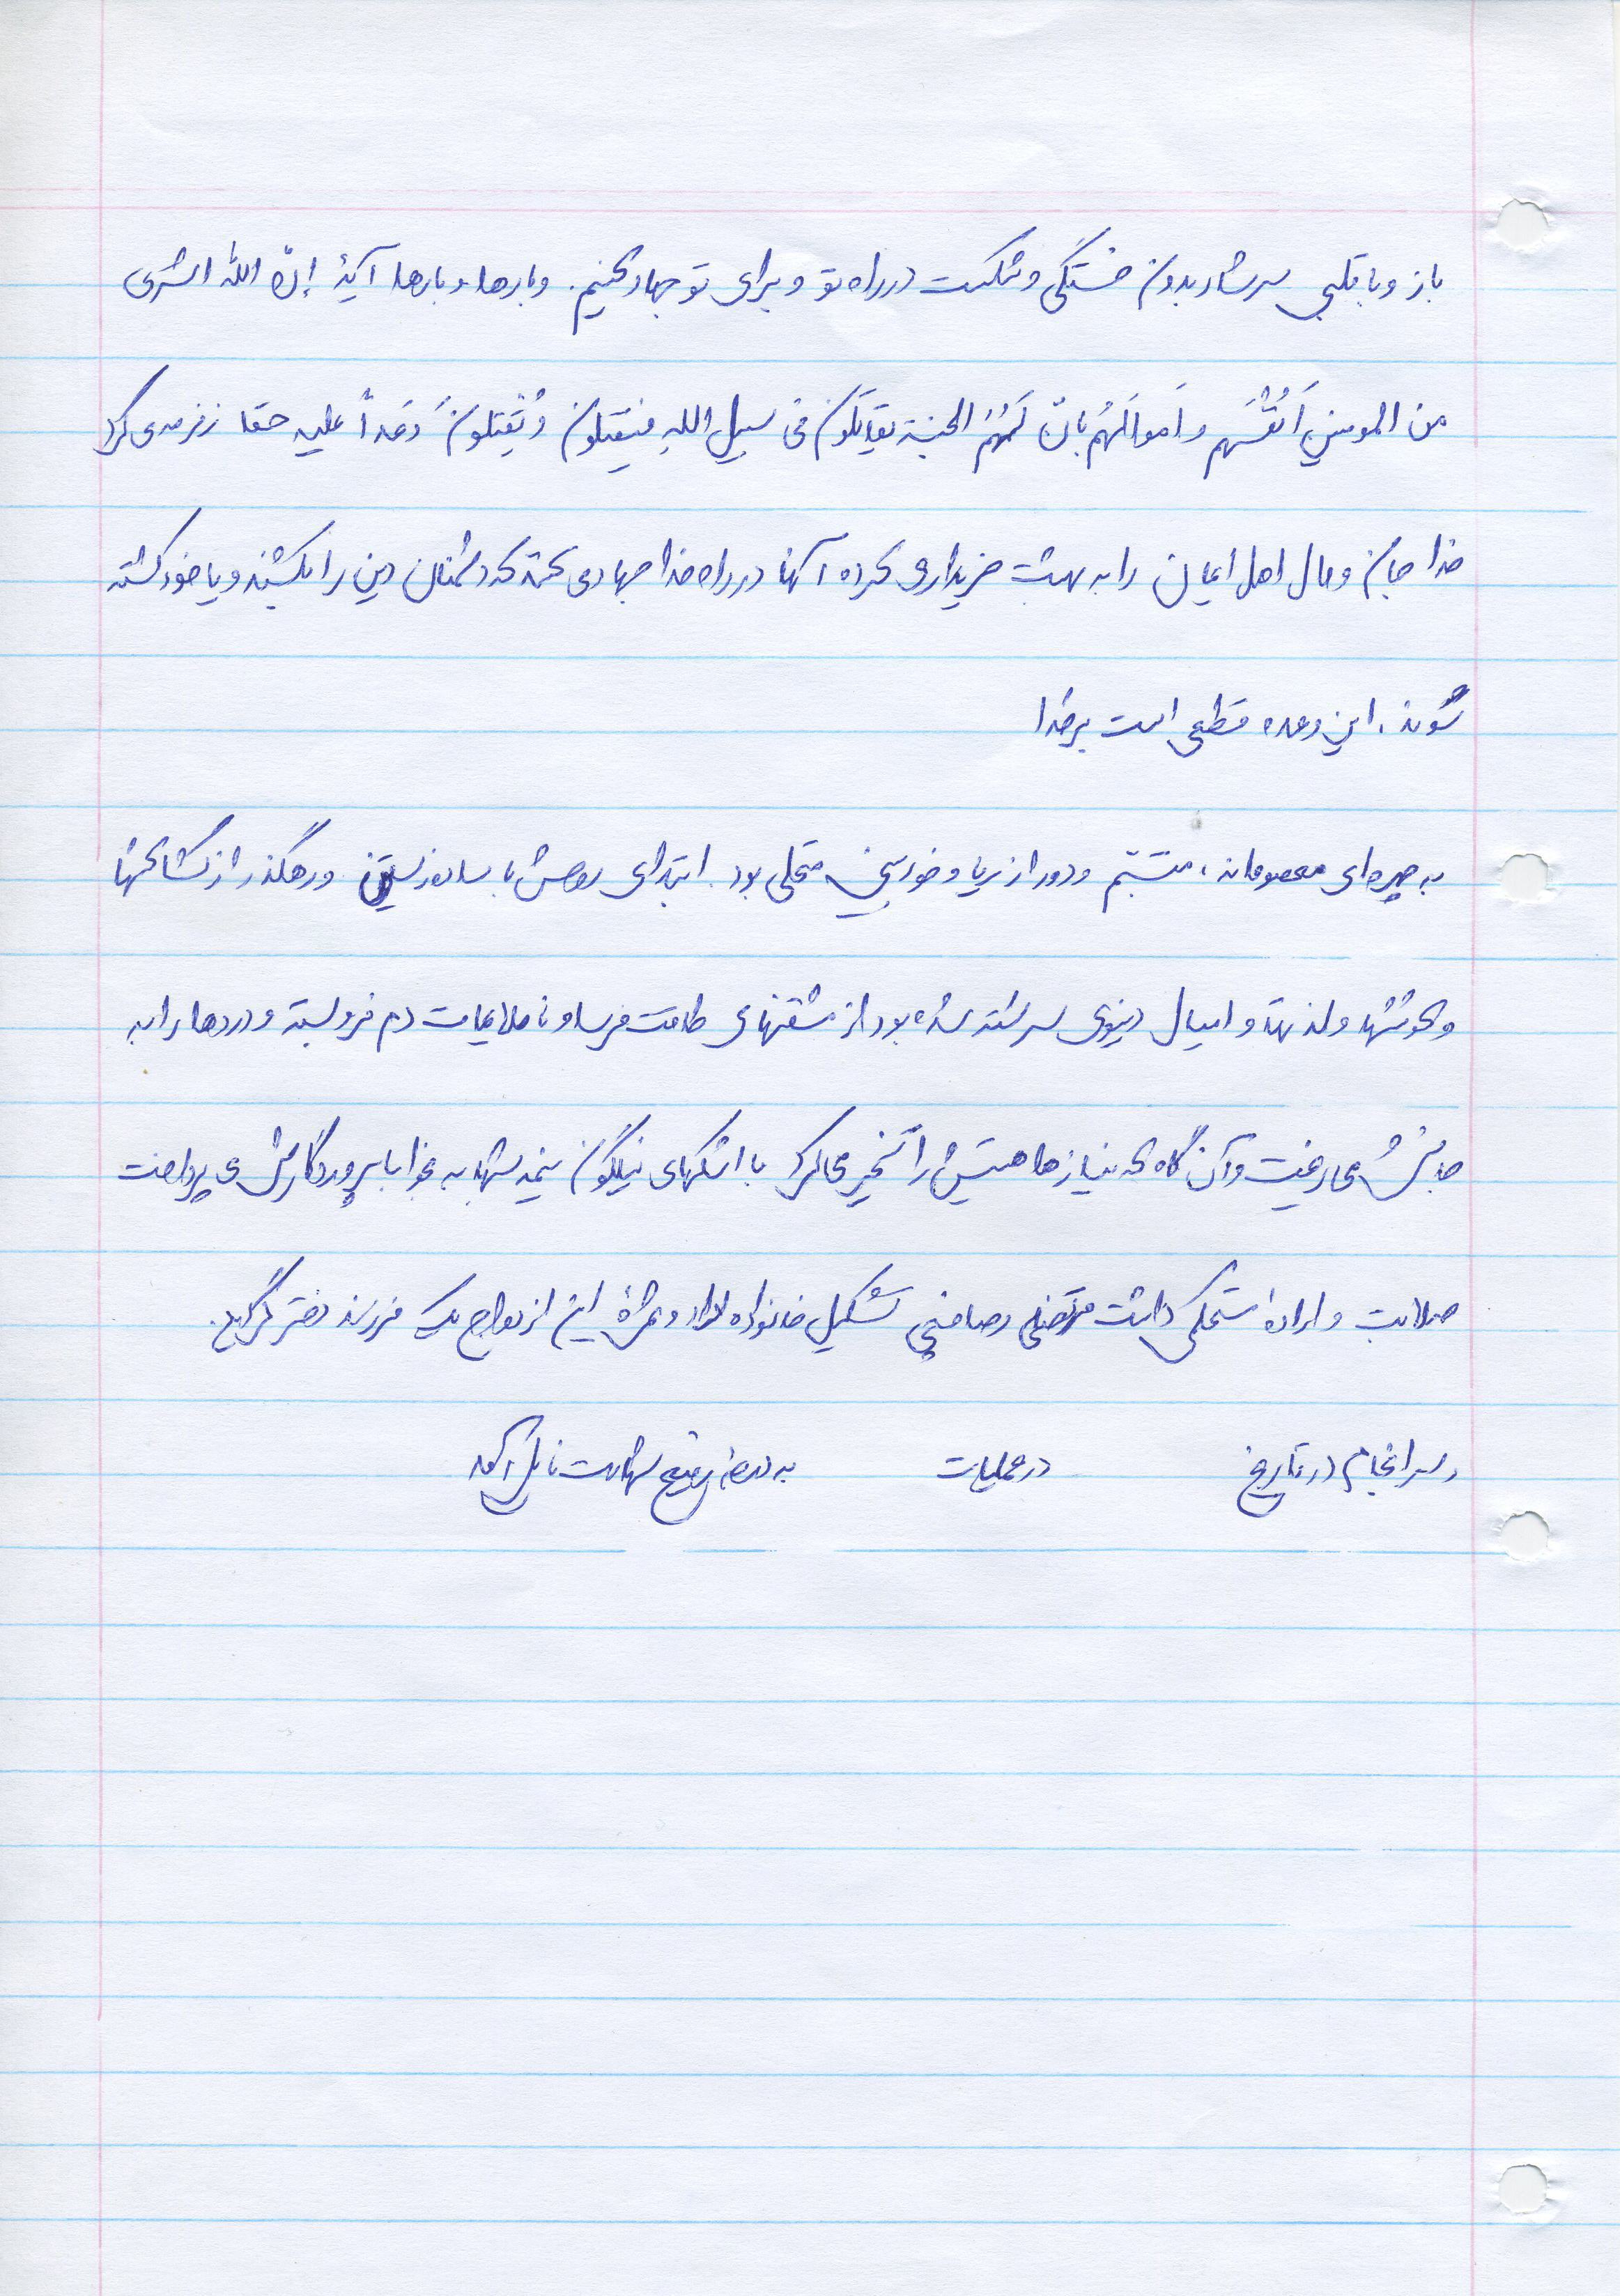 باز و با قلبی سرشار بدون خستگی و شکست در راه تو و برای تو جهاد کنیم. و بارها و بارها آیۀ إنّ الله اشتری
من المومنین اَنفُسَهم و اَموالَهُم بانّ لَهُمُ الجنة یقاتلون فی سبیل الله فیَقتلون وُ یُقتلون وَعَداً علیه حقا زمزمه می کرد
خدا جان و مال اهل ایمان را به بهشت خریداری کرده آنها در راه خدا جهاد می کنند که دشمنان دین را بکشند و یا خود کشته
شوند، این وعده قطعی است بر خدا
به چهره ای معصومانه، متبسم و دور از ریا و خودبینی متجلی بود. ابتدای روحش با ساده زیستن و رهگذر از کشاکشها
و کوششها و لذتها و امیال دنیوی سرشته شده بود از مشقتهای طاقت فرسا و ناملایمات دم فروبسته و دردها را به
جانش می ریخت و آن گاه که نیازها هستیش را تسخیر می کرد با اشکهای نیلگون نیمه شبها به نجوا با پروردگارش می پرداخت
صلابت و ارادۀ مستحکمی داشت مرتضی رصافچی تشکیل خانواده داد و ثمرۀ این ازدواج یک فرزند دختر گردید.
و سرانجام در تاریخ در عملیات به درجۀ رفیع شهادت نایل آمد